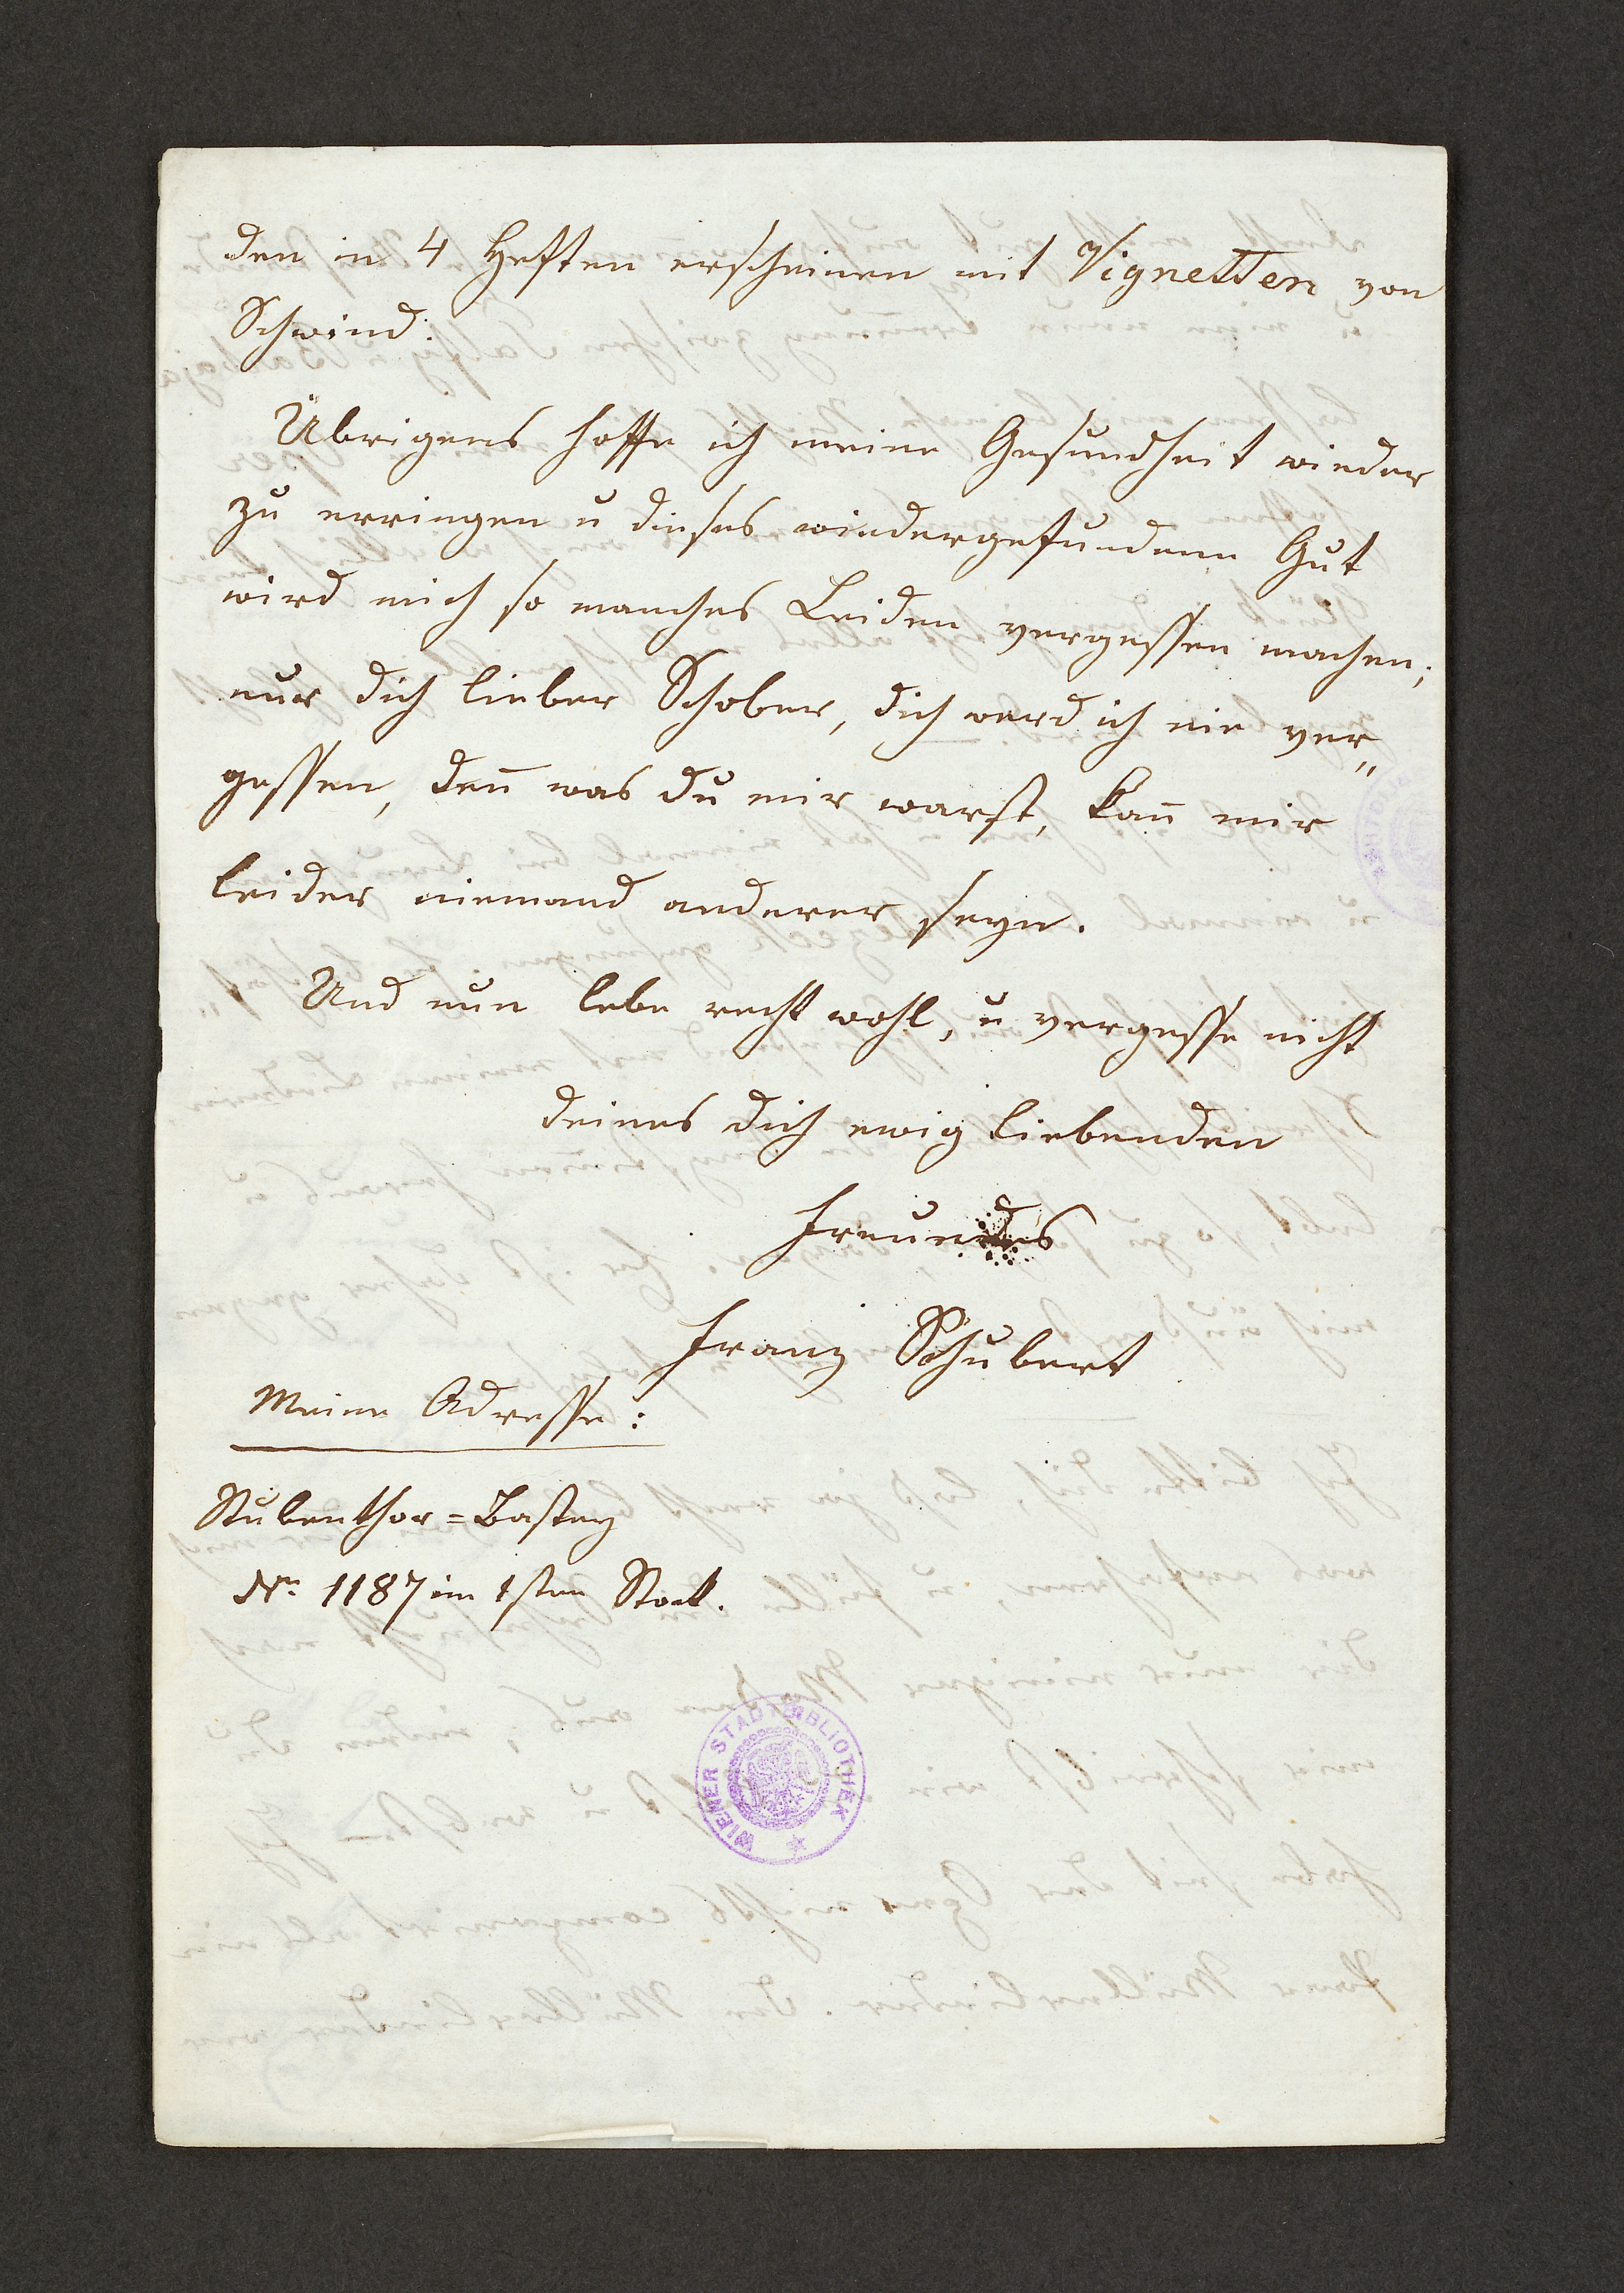 den in 4 Heften erscheinen mit Vignetten von
Schwind.
Übrigens hoffe ich meine Gesundheit wieder
zu erringen u dieses wiedergefundene Gut
wird mich so manches Leiden vergessen machen;
nur dich lieber Schober, dich werd ich nie ver„
gessen, den̄ was du mir warst, kan̄ mir
leider niemand anderer seyn.
Und nun lebe recht wohl, u vergesse nicht
deines dich ewig liebenden
Freundes
Franz Schubert
Meine Adresse:
Stubenthor=Bastey
No. 1187 im 1sten Stock.
WIENER STADTBIBLIOTHEK